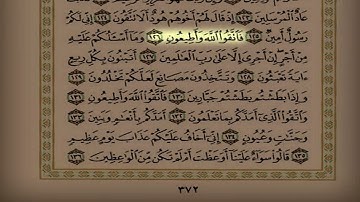 عَادٌ ٱلۡمُرۡسَلِينَ ١٢٣ إِذۡ قَالَ لَهُمۡ أَخُوهُمۡ هُودٌ أَلَا تَتَّقُونَ ١٢٤ إِنِّي لَكُمۡ
رَسُولٌ أَمِينٞ ١٢٥ فَٱتَّقُواْ ٱللَّهَ وَأَطِيعُونِ ١٢٦ وَمَآ أَسۡـَٔلُكُمۡ عَلَيۡهِ
مِنۡ أَجۡرٍۖ إِنۡ أَجۡرِيَ إِلَّا عَلَىٰ رَبِّ ٱلۡعَٰلَمِينَ ١٢٧ أَتَبۡنُونَ بِكُلِّ رِيعٍ
ءَايَةٗ تَعۡبَثُونَ ١٢٨ وَتَتَّخِذُونَ مَصَانِعَ لَعَلَّكُمۡ تَخۡلُدُونَ ١٢٩
وَإِذَا بَطَشۡتُم بَطَشۡتُمۡ جَبَّارِينَ ١٣٠ فَٱتَّقُواْ ٱللَّهَ وَأَطِيعُونِ ١٣١
وَٱتَّقُواْ ٱلَّذِيٓ أَمَدَّكُم بِمَا تَعۡلَمُونَ ١٣٢ أَمَدَّكُم بِأَنۡعَٰمٖ وَبَنِينَ
١٣٣ وَجَنَّٰتٖ وَعُيُونٍ ١٣٤ إِنِّيٓ أَخَافُ عَلَيۡكُمۡ عَذَابَ يَوۡمٍ عَظِيمٖ
١٣٥ قَالُواْ سَوَآءٌ عَلَيۡنَآ أَوَعَظۡتَ أَمۡ لَمۡ تَكُن مِّنَ ٱلۡوَٰعِظِينَ ١٣٦
٣٧٢